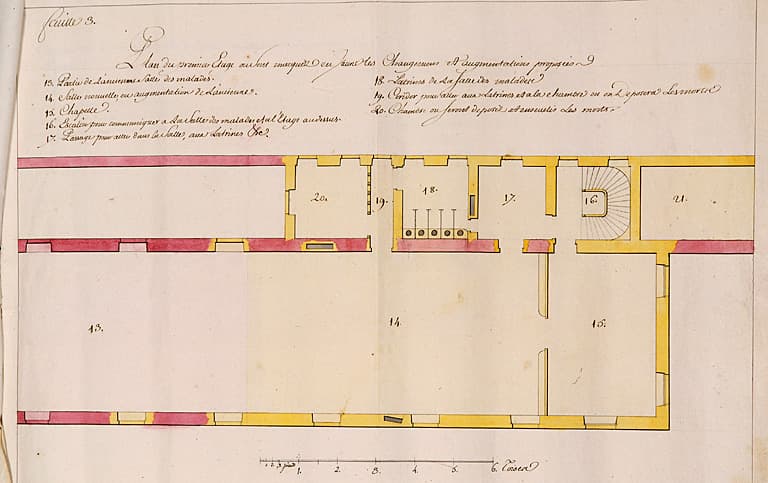 feuille 3.
Plan du premier Etage ou sont marqués en jaune les Changemens et augmentations proposées
13. Partie de L'ancienne Salle des malades.
14. Salle nouvelle ou augmentation de L'ancienne.
15. Chapelle
16. Escalier pour communiquer a La Salle des malades et a l'Etage audessus.
17. Passage pour aller dans la Salle, aux Latrines &c.
18. Latrines de La Salle des malades
19. Coridor pour aller aux Latrines et a la chambre ou on déposera Les morts
20. Chambre ou seront déposés et ensevelis Les morts.
20.
19.
18.
17.
16.
21.
13.
14.
15.
1.
2.
3.
4.
5.
6. Toises